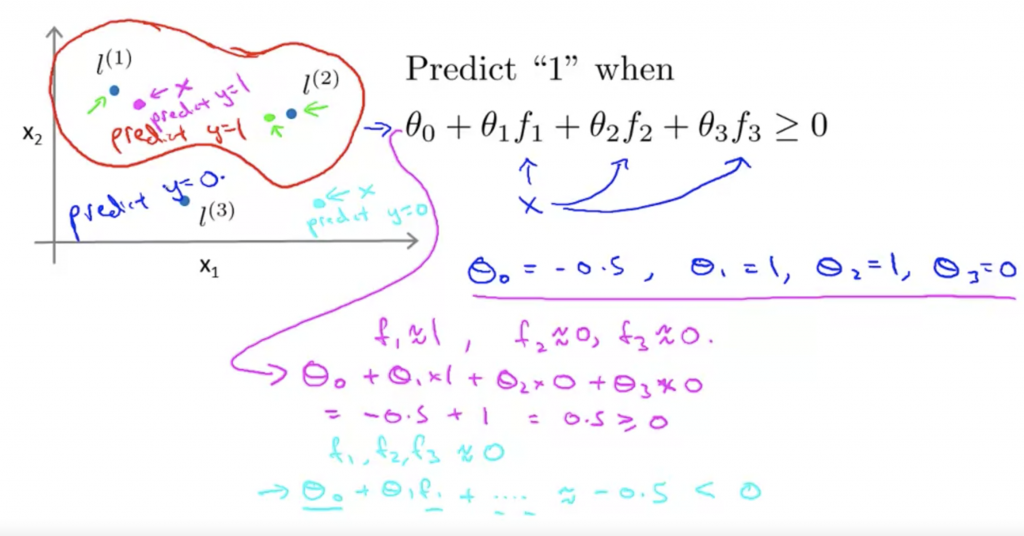 l⁽¹⁾
l⁽²⁾
← x
predict y=1
predict y=1
x₂
predict y=0.
l⁽³⁾
← x
predict y=0
x₁
Predict “1” when
→ θ₀ + θ₁f₁ + θ₂f₂ + θ₃f₃ ≥ 0
x
θ₀ = -0.5, θ₁ = 1, θ₂ = 1, θ₃ = 0
f₁ ≈ 1, f₂ ≈ 0, f₃ ≈ 0.
→ θ₀ + θ₁ × 1 + θ₂ × 0 + θ₃ × 0
= -0.5 + 1 = 0.5 ≥ 0
f₁, f₂, f₃ ≈ 0
→ θ₀ + θ₁f₁ + .... ≈ -0.5 < 0